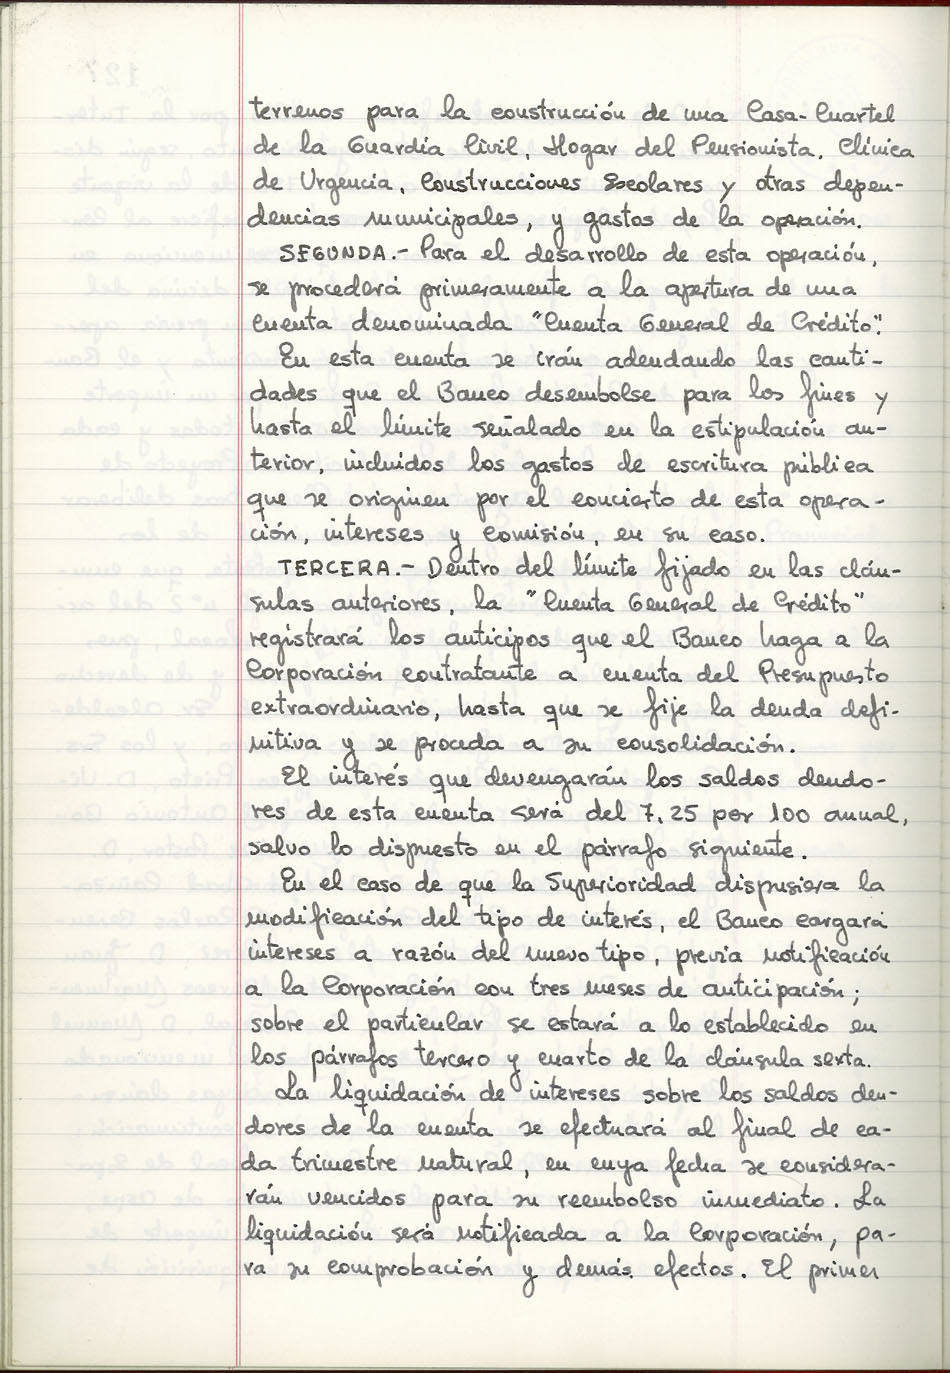 terrenos para la construcción de una Casa-Cuartel
de la Guardia Civil, Hogar del Pensionista, Clínica
de Urgencia, Construcciones Escolares y otras depen-
dencias municipales, y gastos de la operación.
SEGUNDA.- Para el desarrollo de esta operación,
se procederá primeramente a la apertura de una
cuenta denominada "Cuenta General de Crédito".
En esta cuenta se irán adeudando las canti-
dades que el Banco desembolse para los fines y
hasta el límite señalado en la estipulación an-
terior, incluidos los gastos de escritura pública
que se originen por el concierto de esta opera-
ción, intereses y comisión, en su caso.
TERCERA.- Dentro del límite fijado en las cláu-
sulas anteriores, la "Cuenta General de Crédito"
registrará los anticipos que el Banco haga a la
Corporación contratante a cuenta del Presupuesto
extraordinario, hasta que se fije la deuda defi-
nitiva y se proceda a su consolidación.
El interés que devengarán los saldos deudo-
res de esta cuenta será del 7,25 por 100 anual,
salvo lo dispuesto en el párrafo siguiente.
En el caso de que la Superioridad dispusiera la
modificación del tipo de interés, el Banco cargará
intereses a razón del nuevo tipo, previa notificación
a la Corporación con tres meses de anticipación;
sobre el particular se estará a lo establecido en
los párrafos tercero y cuarto de la cláusula sexta.
La liquidación de intereses sobre los saldos deu-
dores de la cuenta se efectuará al final de ca-
da trimestre natural, en cuya fecha se considera-
rán vencidos para su reembolso inmediato. La
liquidación será notificada a la Corporación, pa-
ra su comprobación y demás efectos. El primer